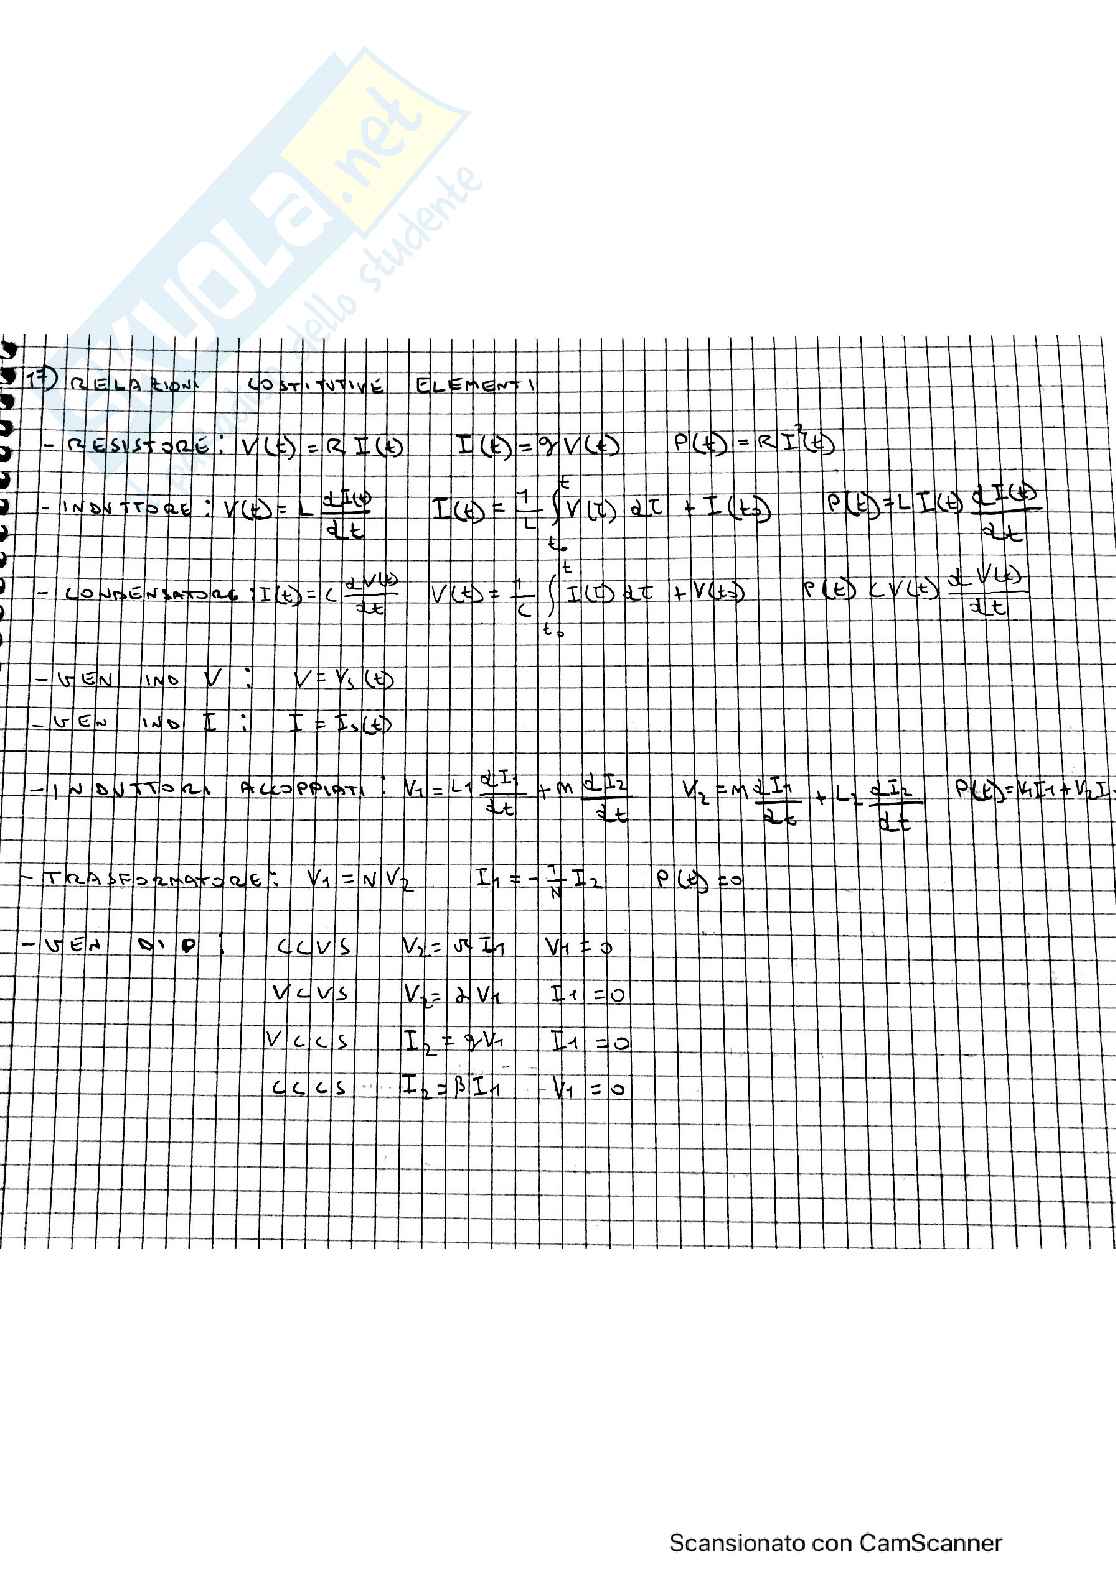 SKUOLA.net
dello studente
17) RELAZIONI COSTITUTIVE ELEMENTI
- RESISTORE: V(t) = R I(t) I(t) = g V(t) P(t) = R I²(t)
- INDUTTORE: V(t) = L dI(t)/dt I(t) = 1/L ∫_{t₀}^{t} V(τ) dτ + I(t₀) P(t) = L I(t) dI(t)/dt
- CONDENSATORE: I(t) = C dV(t)/dt V(t) = 1/C ∫_{t₀}^{t} I(τ) dτ + V(t₀) P(t) C V(t) dV(t)/dt
- GEN IND V : V = Vs(t)
- GEN IND I : I = Is(t)
- INDUTTORI ACCOPPIATI : V₁ = L₁ dI₁/dt + M dI₂/dt V₂ = M dI₁/dt + L₂ dI₂/dt P(t) = V₁I₁ + V₂I₂
- TRASFORMATORE: V₁ = N V₂ I₁ = - 1/N I₂ P(t) = 0
- GEN DIP : CCVS V₂ = r I₁ V₁ = 0
VCVS V₂ = α V₁ I₁ = 0
VCCS I₂ = g V₁ I₁ = 0
CCCS I₂ = β I₁ V₁ = 0
Scansionato con CamScanner